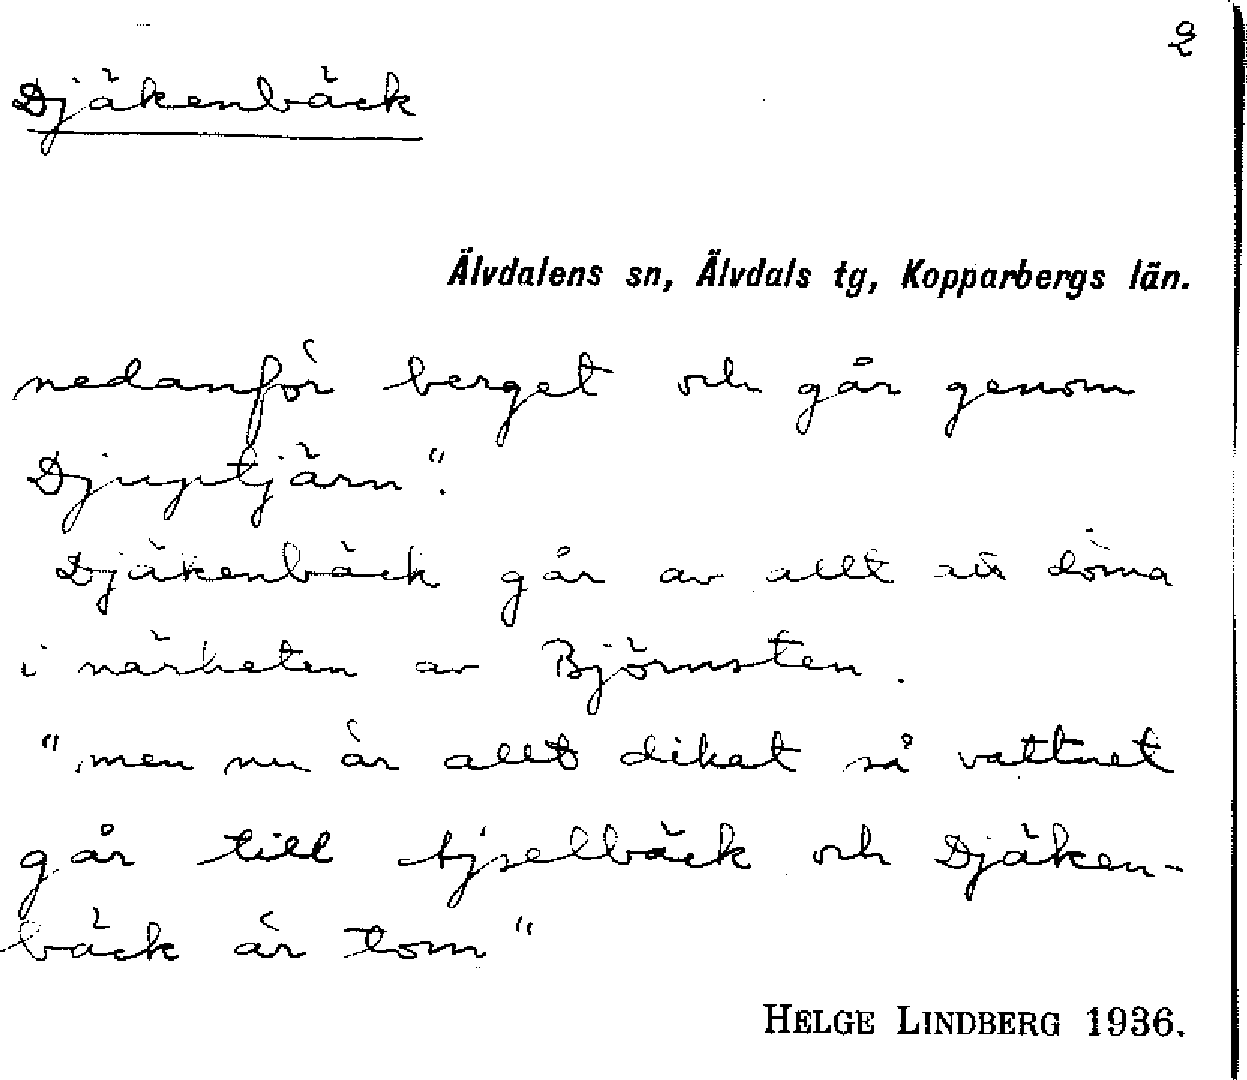 2
Djäkenbäck
Älvdalens sn, Älvdals tg, Kopparbergs län.
nedanför berget och går genom
Djuptjärn".
Djäkenbäck går av allt att döma
i närheten av Björnsten.
"men nu är allt dikat så vattnet
går till tjselbäck och Djäken-
bäck är tom"
HELGE LINDBERG 1936.